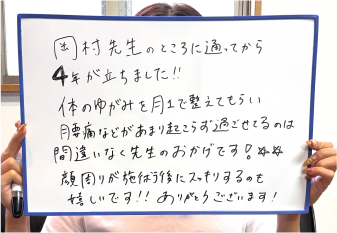 岡村先生のところに通ってから
4年が立ちました!!
体のゆがみを月1で整えてもらい
腰痛などがあまり起こらず過ごせてるのは
間違いなく先生のおかげです!☆☆
顔周りが施術後にスッキリするのも
嬉しいです!! ありがとうございます!